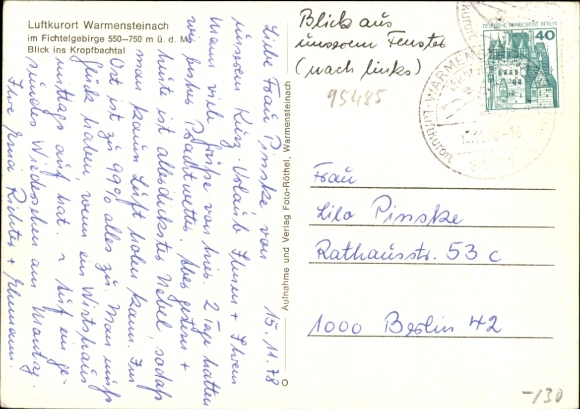 Luftkurort Warmensteinach
im Fichtelgebirge 550–750 m ü. d. M.
Blick ins Kropfbachtal
15.11.78
Liebe Frau Pinske, von
unserem Kurz-Urlaub Ihnen + Ihrem
Mann viele Grüße von hier. 2 Tage hatten
wir bestes Prachtwetter. Aber gestern +
heute ist allerdickster Nebel, sodaß
man kaum Luft holen kann. Im
Ort ist zu 99% alles zu. Man muß
Glück haben, wenn ein Wirtshaus
mittags auf hat. Auf ein ge-
sundes Wiedersehen am Montag.
Ihre Erna Richter + Ehemann.
Aufnahme und Verlag Foto-Röthel, Warmensteinach
Blick aus
unserem Fenster
(nach links)
95485
DEUTSCHE BUNDESPOST BERLIN
40
LUFTKURORT WARMEN
Frau
Lilo Pinske
Rathausstr. 53 c
1000 Berlin 42
-130